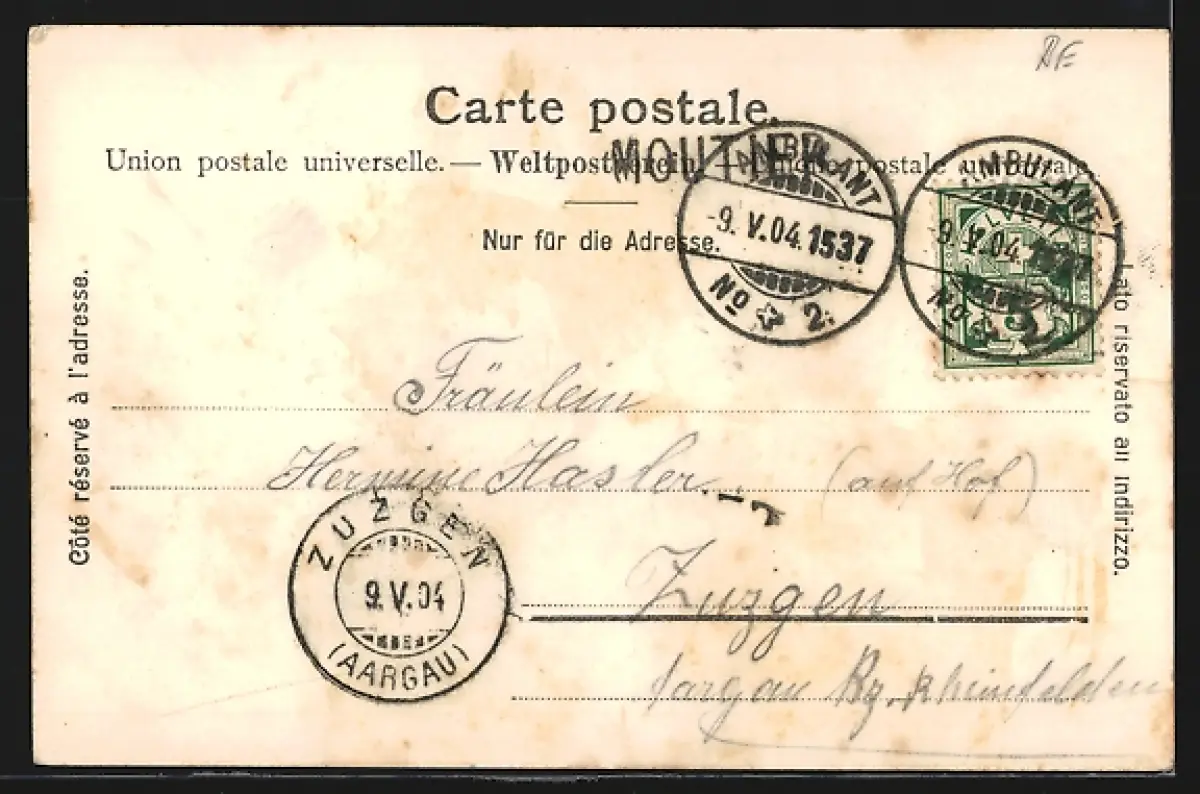 BE
Carte postale.
MOUTIER
Union postale universelle. — Weltpostverein. — Unione postale universale.
Nur für die Adresse.
AMBULANT
-9. V. 04. 1537
No 2.
AMBULANT
9. V. 04. 1537
No 2.
HELVETIA
5
Côté réservé à l'adresse.
Lato riservato all indirizzo.
Fräulein
Hermine Hasler (auf Hof)
ZUZGEN
9. V. 04
(AARGAU)
Zuzgen
Aargau Bz. Rheinfelden